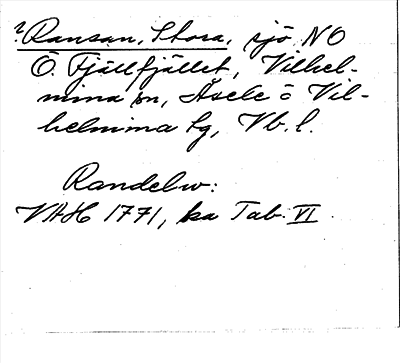 ? Ransan, Stora, sjö NO
Ö. Fjällfjället, Vilhel-
mina sn, Åsele o Vil-
helmina tg, Vb. l.
Randelw:
VAH 1771, ka Tab. VI